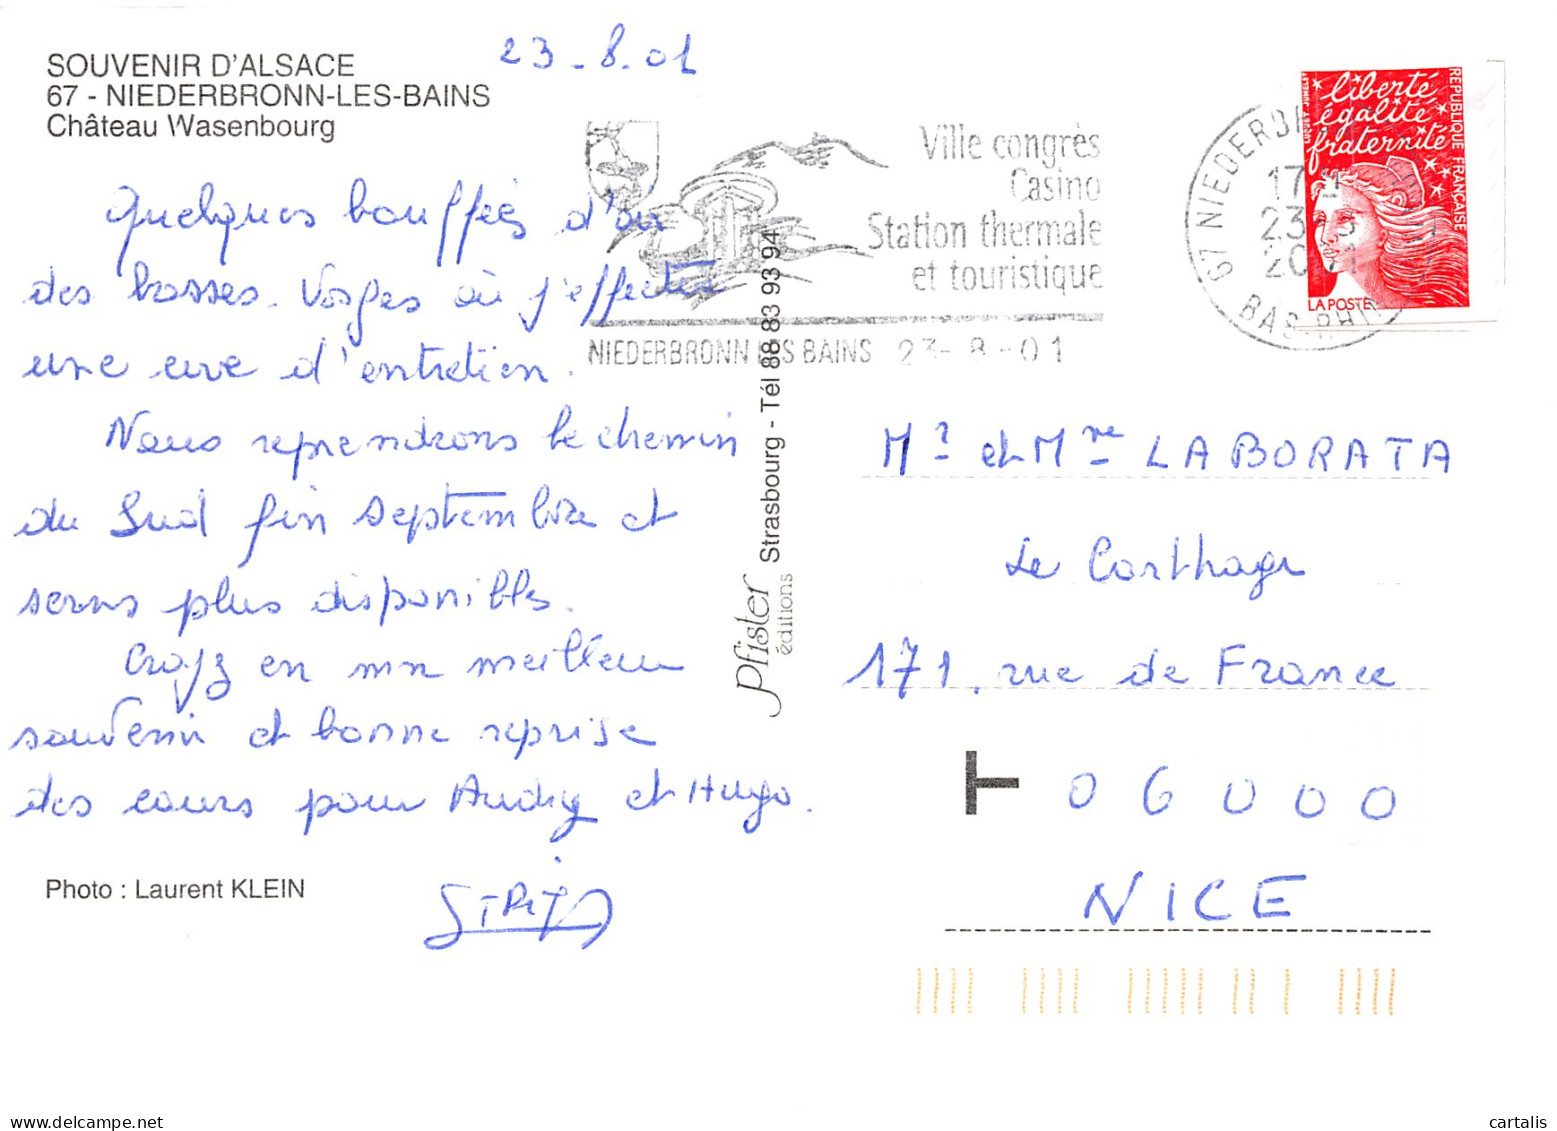 SOUVENIR D'ALSACE
67 - NIEDERBRONN-LES-BAINS
Château Wasenbourg
23-8.01
Quelques bouffées d'air
des basses-Vosges où j'effectue
une cure d'entretien.
Nous reprendrons le chemin
du Sud fin septembre et
serons plus disponibles.
Croyez en mon meilleur
souvenir et bonne reprise
des cours pour Audrey et Hugo.
Photo : Laurent KLEIN
Pfister
éditions
Strasbourg - Tél 88 83 93 94
Ville congrès
Casino
Station thermale
et touristique
NIEDERBRONN LES BAINS 23-8-01
67 NIEDERB
17H
23-8
2001
BAS-RHIN
liberté
égalité
fraternité
REPUBLIQUE FRANÇAISE
LA POSTE
Mr et Mme LABORATA
Le Carthage
171, rue de France
T
06000
NICE
cartalis